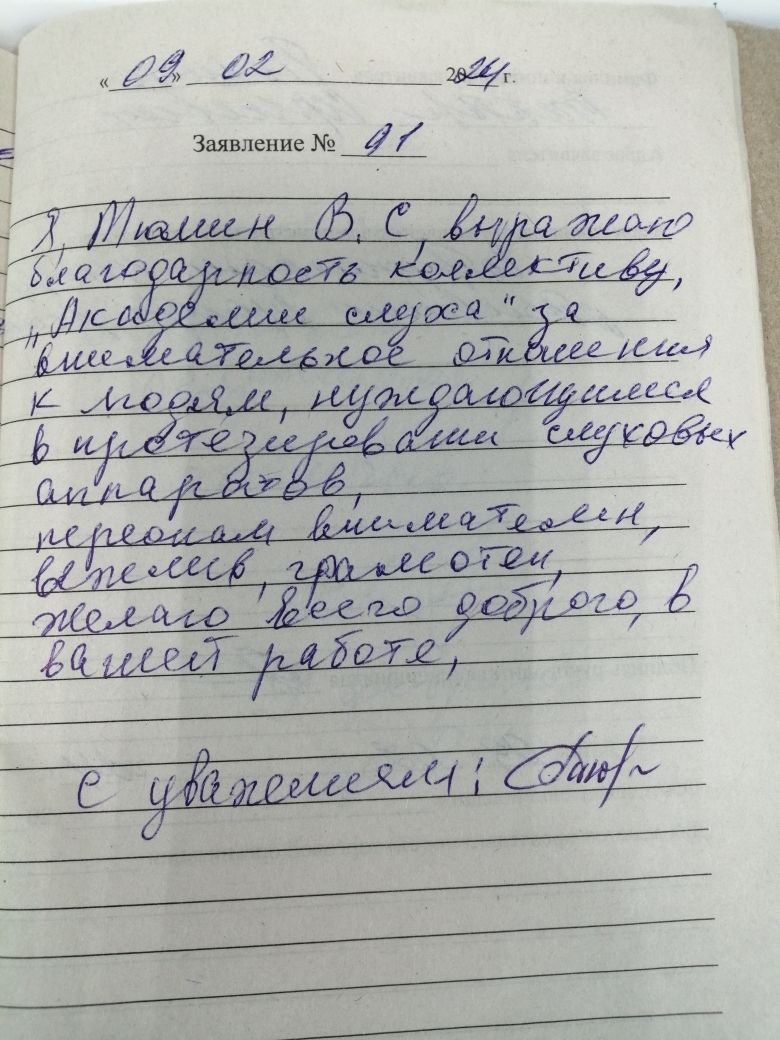 « 09 » 02 2024 г.
Заявление № 91
Я, Тюмин В. С, выражаю
благодарность коллективу,
„Академии слуха" за
внимательное отношения
к людям, нуждающимся
в протезировании слуховых
аппаратов,
персонал внимателен,
вежлив, грамотен,
желаю всего доброго, в
вашей работе,
с уважением: